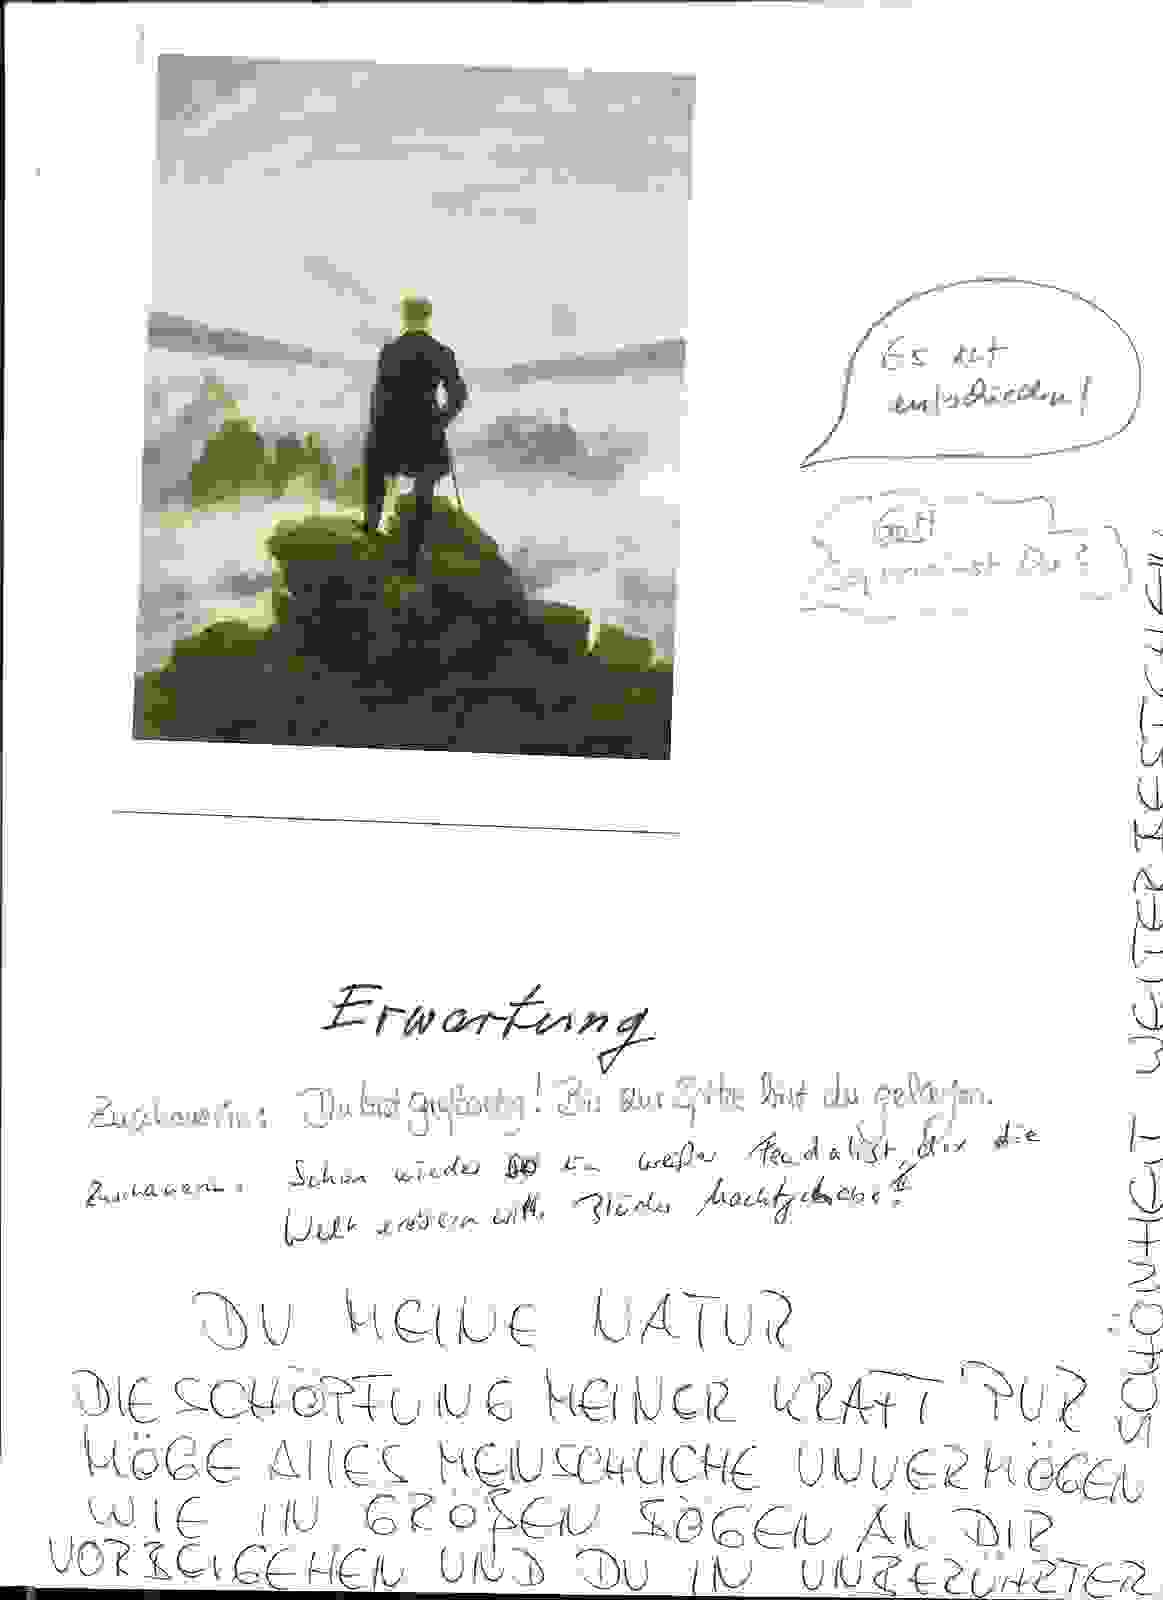 Es ist
entschieden!
Gott
meinst Du?
Erwartung
Zuschauerin: Du bist großartig! Bis zur Spitze bist du gelangen.
Zuschauerin: Schon wieder ein weißer Feudalist, der die
Welt erobern will. Blinde Machtgehabe!
DU MEINE NATUR
DIE SCHÖPFUNG MEINER KRAFT PUR
MÖGE ALLES MENSCHLICHE UNVERMÖGEN
WIE IN GROßEN BÖGEN AN DIR
VORBEIGEHEN UND DU IN UNBERÜHRTER
SCHÖNHEIT WEITER BESTEHEN